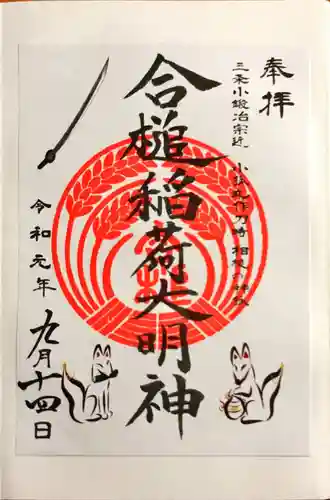 奉拝
三条小鍛冶宗近 小狐丸作刀時 相槌の神蹟
合槌稲荷大明神
令和元年
九月十四日